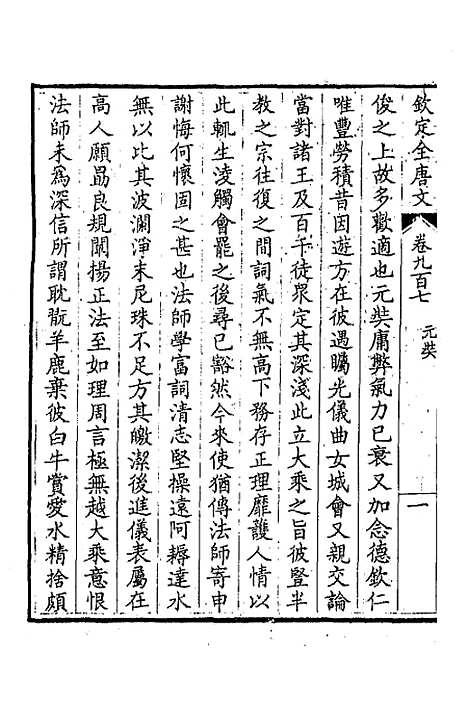 欽定全唐文　卷九百七　元奘　一
俊之上故多歡適也元奘庸弊氣力已衰又加念德欽仁
唯豐勞積昔因遊方在彼遇矚光儀曲女城會又親交論
當對諸王及百千徒衆定其深淺此立大乘之旨彼豎半
教之宗往復之間詞氣不無高下務存正理靡護人情以
此輒生淩觸會罷之後尋已豁然今來使猶傳法師寄申
謝悔何懷固之甚也法師學富詞清志堅操遠阿耨達水
無以比其波瀾淨末尼珠不足方其皦潔後進儀表屬在
高人願勗良規闡揚正法至如理周言極無越大乘意恨
法師未爲深信所謂耽翫羊鹿棄彼白牛賞愛水精捨頗